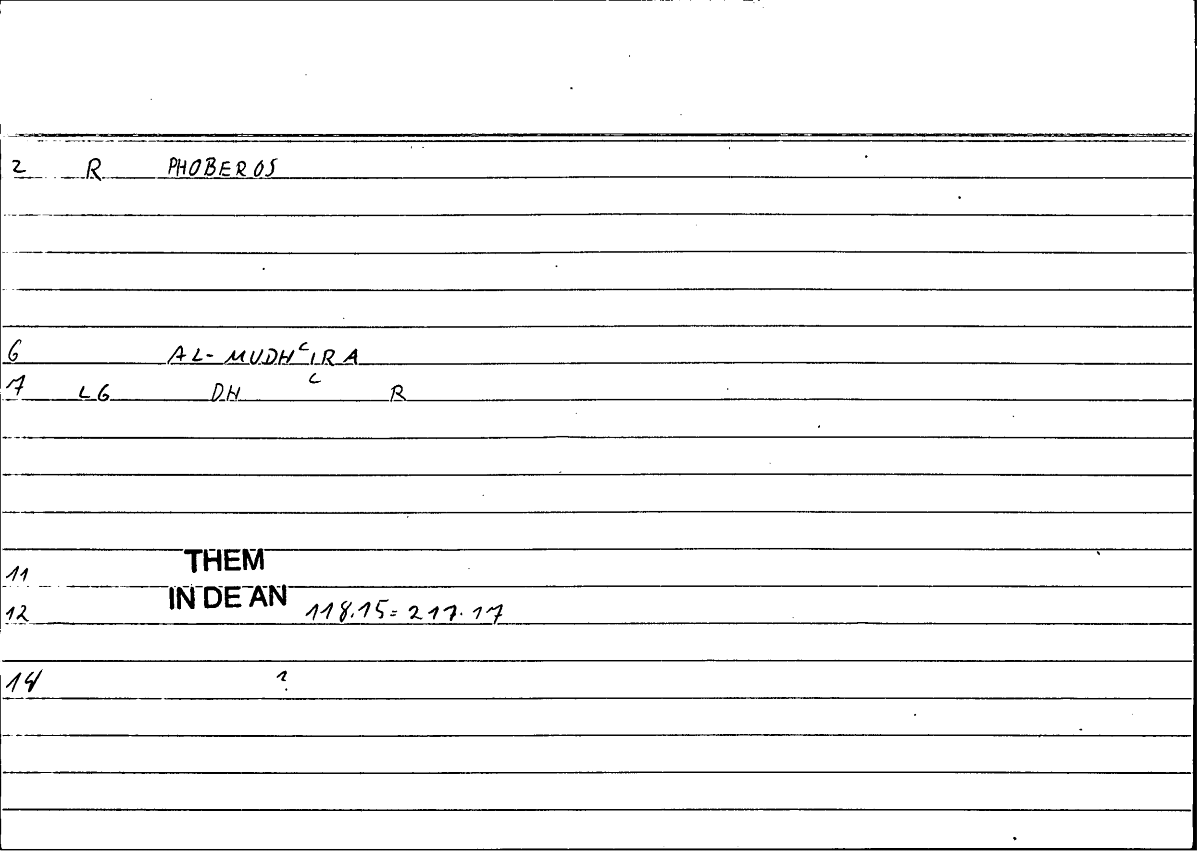 2 R PHOBEROS
6 AL-MUDHʿIRA
7 LG DH ʿ R
11 THEM
IN DE AN
12 118.15=217.17
14 ?